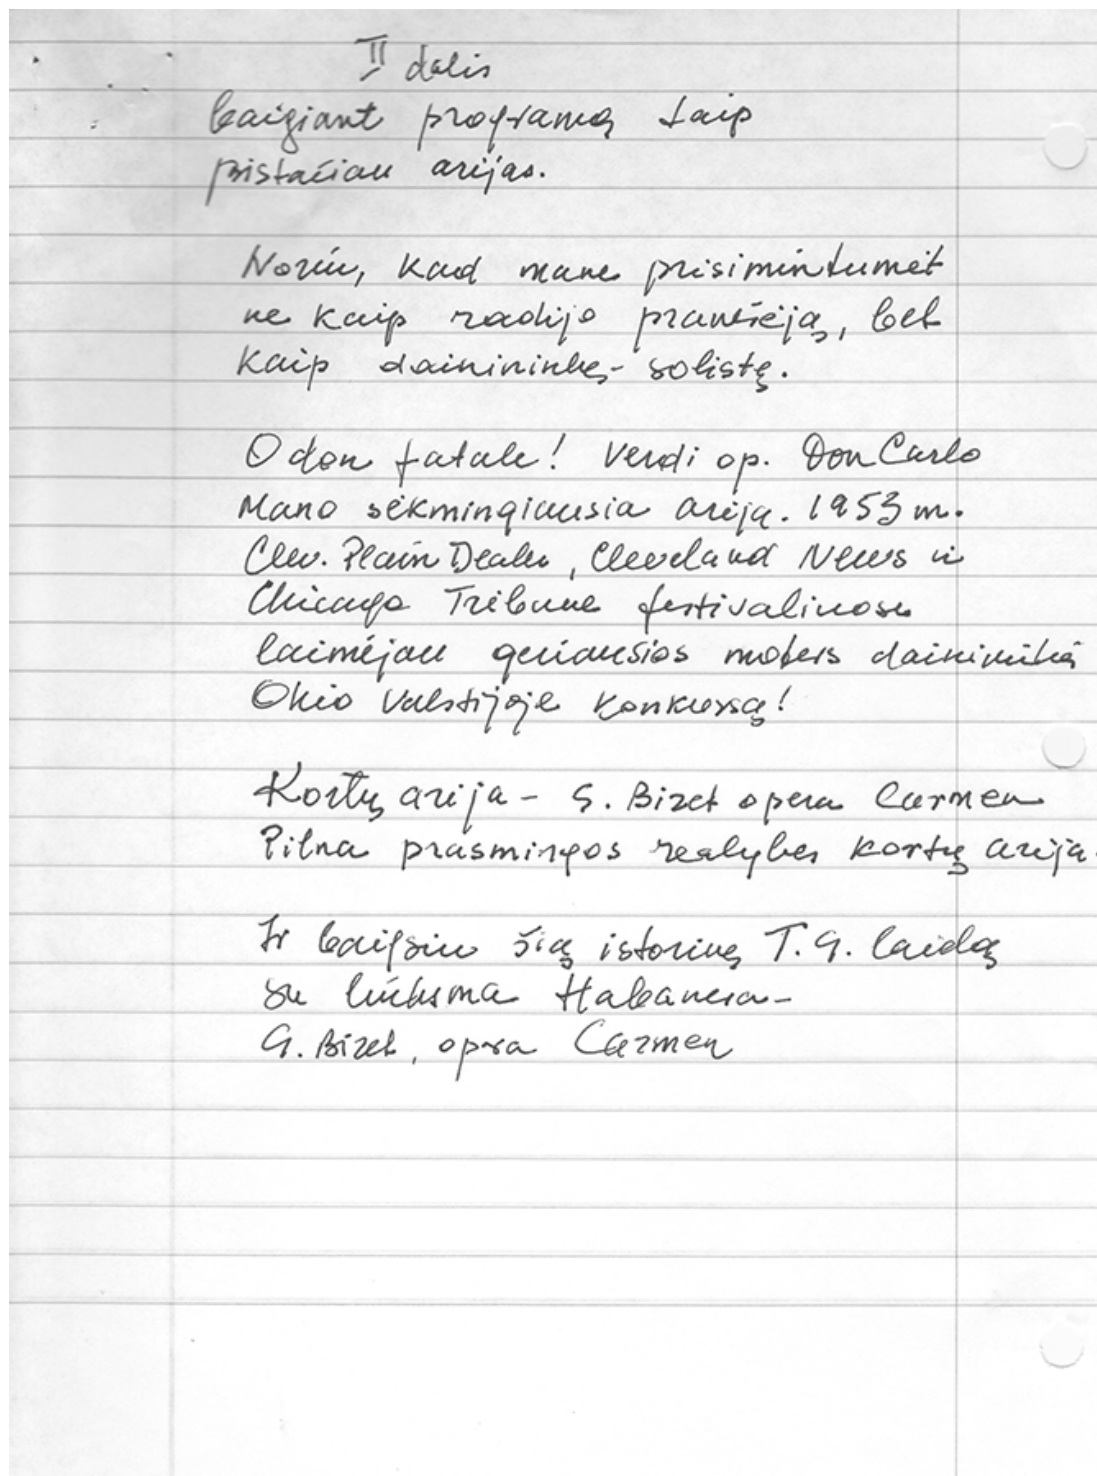 II dalis
baigiant programą taip
pristačiau arijas.
Noriu, kad mane prisimintumėt
ne kaip radijo pranešėją, bet
kaip dainininkę-solistę.
O don fatale! Verdi op. Don Carlo
Mano sėkmingiausia arija. 1953 m.
Clev. Plain Dealer, Cleveland News ir
Chicago Tribune festivaliuose
laimėjau geriausios moters dainininkės
Ohio valstijoje konkursą!
Kortų arija - G. Bizet opera Carmen
Pilna prasmingos realybės kortų arija.
Ir baigsiu šią istorinę T. G. laidą
su linksma Habanera-
G. Bizet, opra Carmen